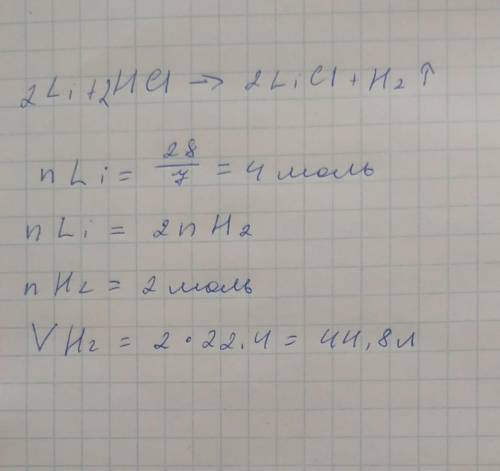 2Li+2HCl → 2LiCl + H₂↑
nLi = 28/7 = 4 моль
nLi = 2nH₂
nH₂ = 2 моль
VH₂ = 2•22.4 = 44,8л